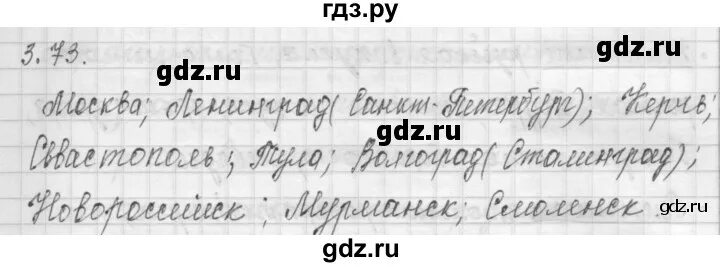 гдз.ру
3.73.
gdz.ru
gdz.ru
Москва; Ленинград (Санкт-Петербург); Керчь;
Севастополь; Тула; Волгоград (Сталинград);
gdz.ru
gdz.ru
Новороссийск; Мурманск; Смоленск.
gdz.ru
gdz.ru
gdz.ru